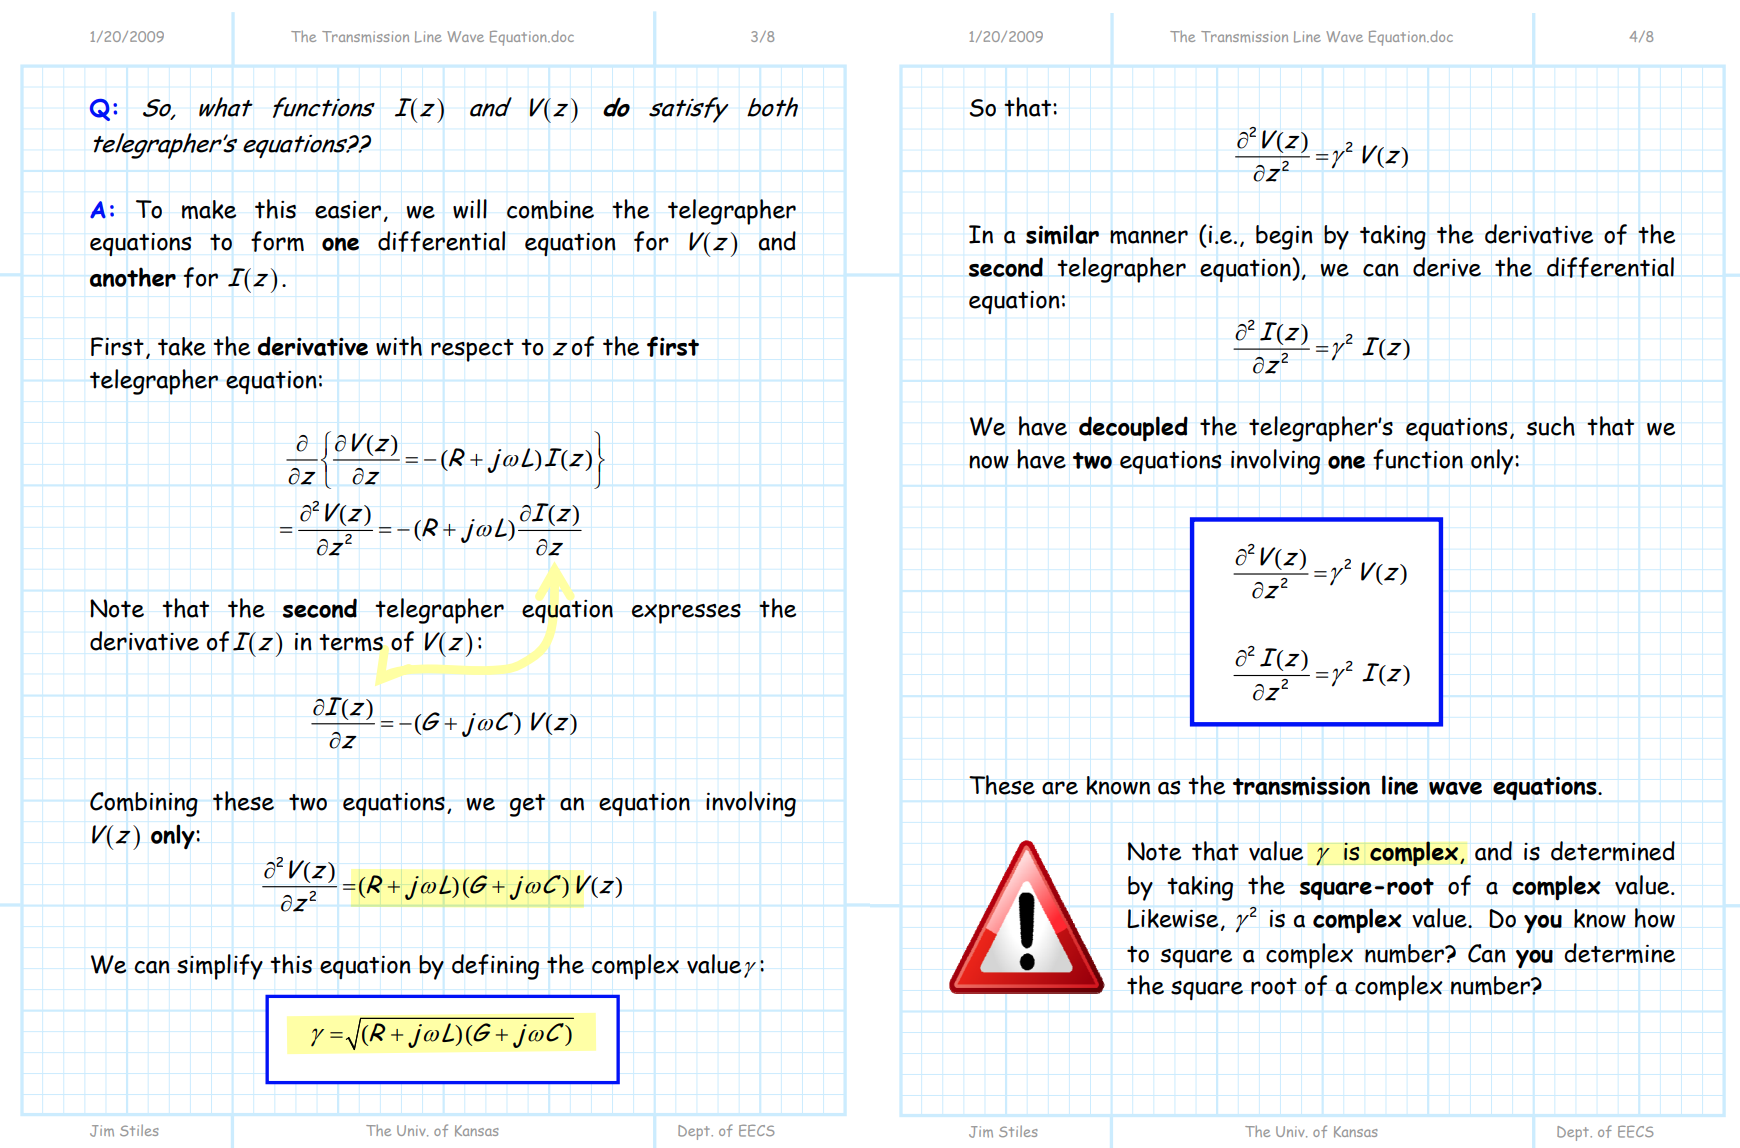 1/20/2009 The Transmission Line Wave Equation.doc 3/8
Q: So, what functions I(z) and V(z) do satisfy both
telegrapher's equations??
A: To make this easier, we will combine the telegrapher
equations to form one differential equation for V(z) and
another for I(z).
First, take the derivative with respect to z of the first
telegrapher equation:
∂/∂z {∂V(z)/∂z = −(R + jωL) I(z)}
= ∂²V(z)/∂z² = −(R + jωL) ∂I(z)/∂z
Note that the second telegrapher equation expresses the
derivative of I(z) in terms of V(z):
∂I(z)/∂z = −(G + jωC) V(z)
Combining these two equations, we get an equation involving
V(z) only:
∂²V(z)/∂z² = (R + jωL)(G + jωC) V(z)
We can simplify this equation by defining the complex value γ:
γ = √(R + jωL)(G + jωC)
Jim Stiles The Univ. of Kansas Dept. of EECS
1/20/2009 The Transmission Line Wave Equation.doc 4/8
So that:
∂²V(z)/∂z² = γ² V(z)
In a similar manner (i.e., begin by taking the derivative of the
second telegrapher equation), we can derive the differential
equation:
∂²I(z)/∂z² = γ² I(z)
We have decoupled the telegrapher's equations, such that we
now have two equations involving one function only:
∂²V(z)/∂z² = γ² V(z)
∂²I(z)/∂z² = γ² I(z)
These are known as the transmission line wave equations.
Note that value γ is complex, and is determined
by taking the square-root of a complex value.
Likewise, γ² is a complex value. Do you know how
to square a complex number? Can you determine
the square root of a complex number?
Jim Stiles The Univ. of Kansas Dept. of EECS